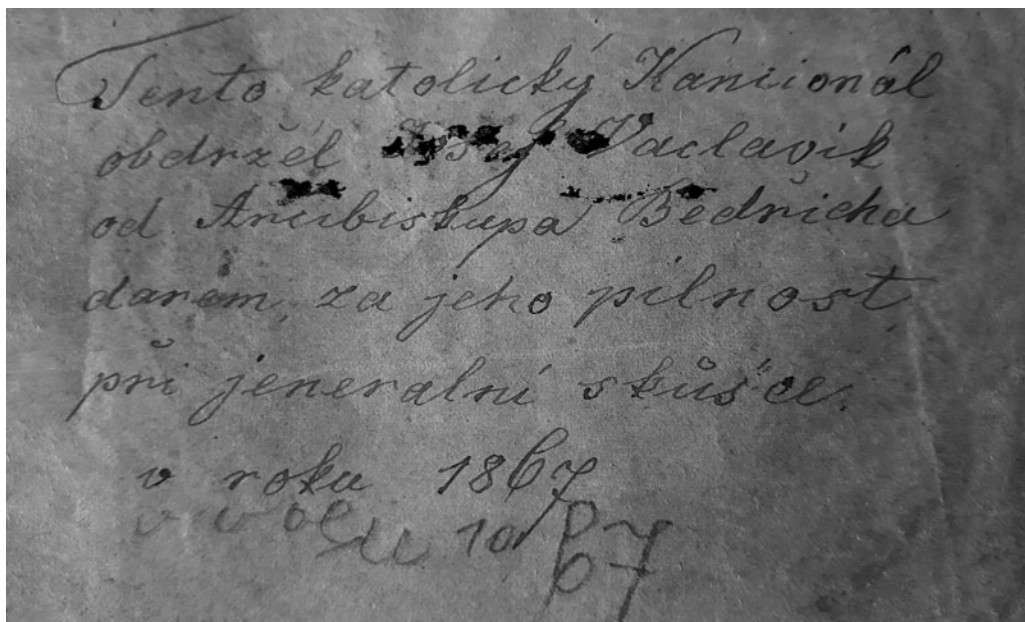 Tento katolický Kancionál
obdržél Josef Vaclavik
od Arcibiskupa Bedřicha
darem, za jeho pilnost,
při jeneralní skůšce.
v roku 1867